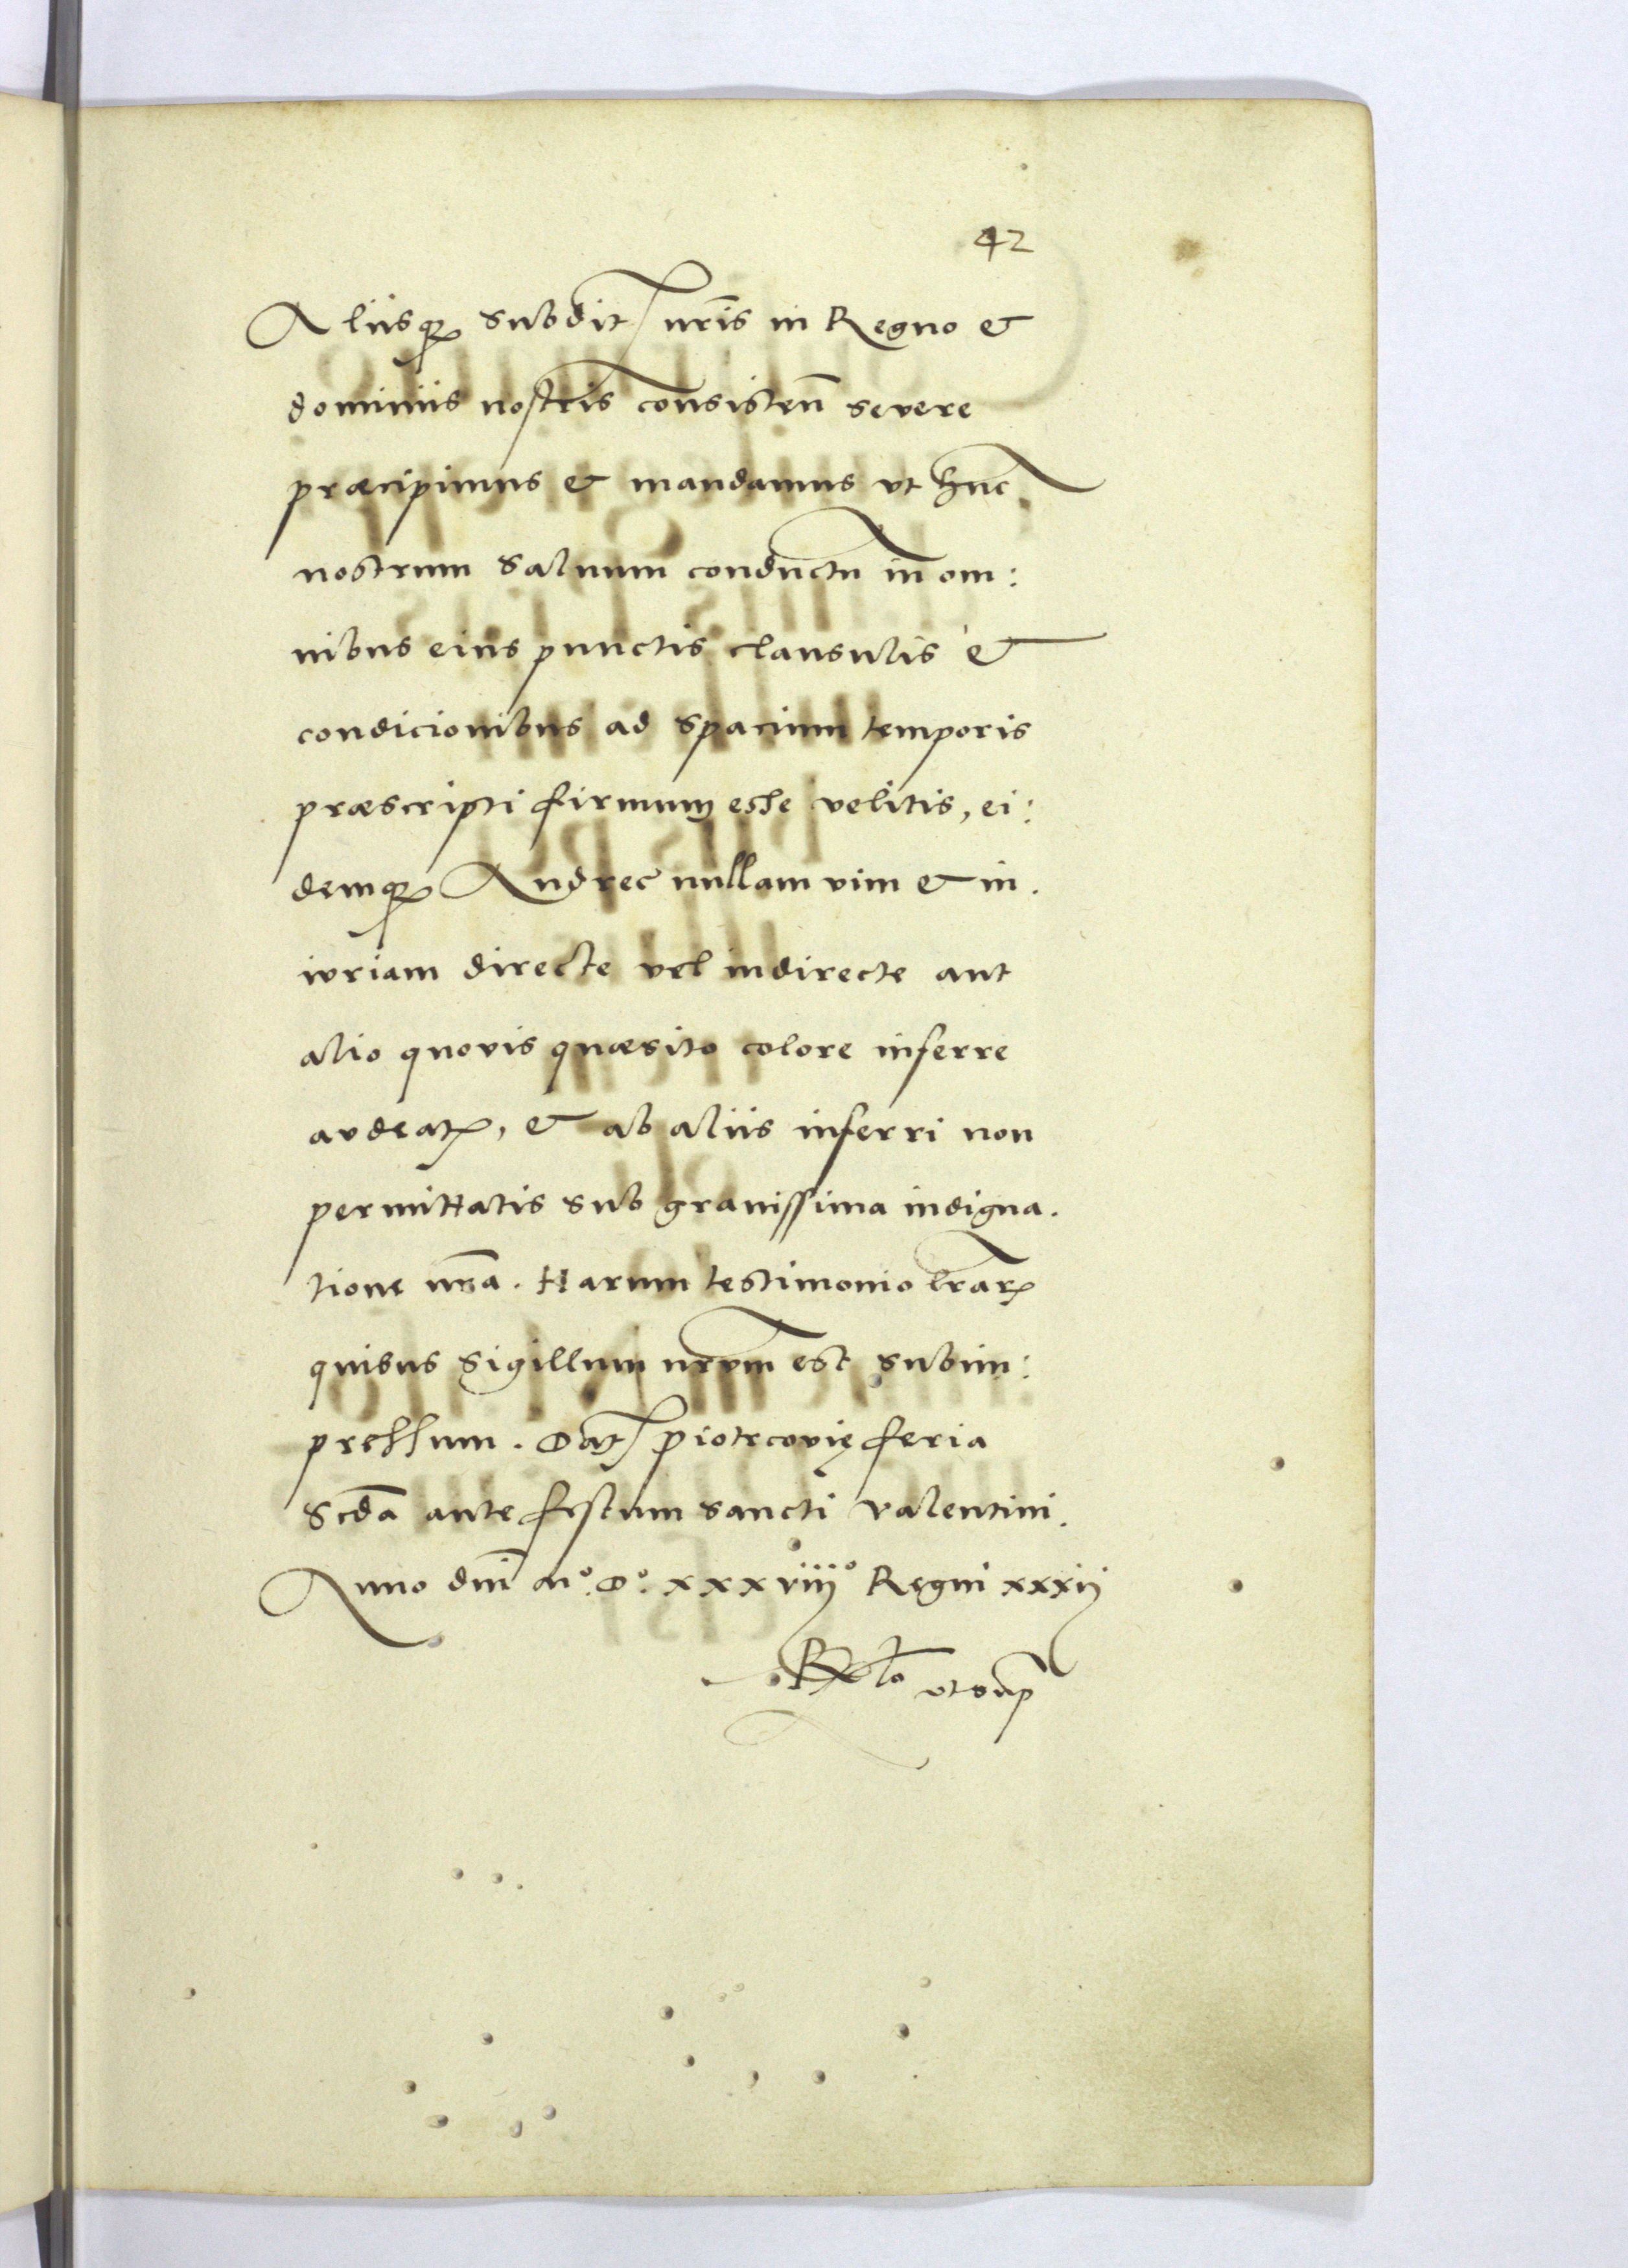 42
Aliisq₃ subdit nr̄is in Regno &
dominiis nostris consisten̄ severe
præcipimus & mandamus vt hūc
nostrum saluum conductū in om:
nibus eius punctis clausulis &
condicionibus ad spacium temporis
præscripti firmum esse velitis, ei:
demq₃ Andreę nullam vim & in.
iuriam directe vel indirecte aut
alio quovis quæsito colore inferre
audeatꝭ, & ab aliis inferri non
permittatis sub grauissima indigna.
tione nr̄a. Harum testimonio lr̄aꝝ
quibus Sigillum nr̄um est subim:
pressum. Dat Piotrcovię feria
Scd̄a ante festum sancti Valentini.
Anno dn̄i Mº. Dº. xxxviijº Regni xxxij
Relō vt sup